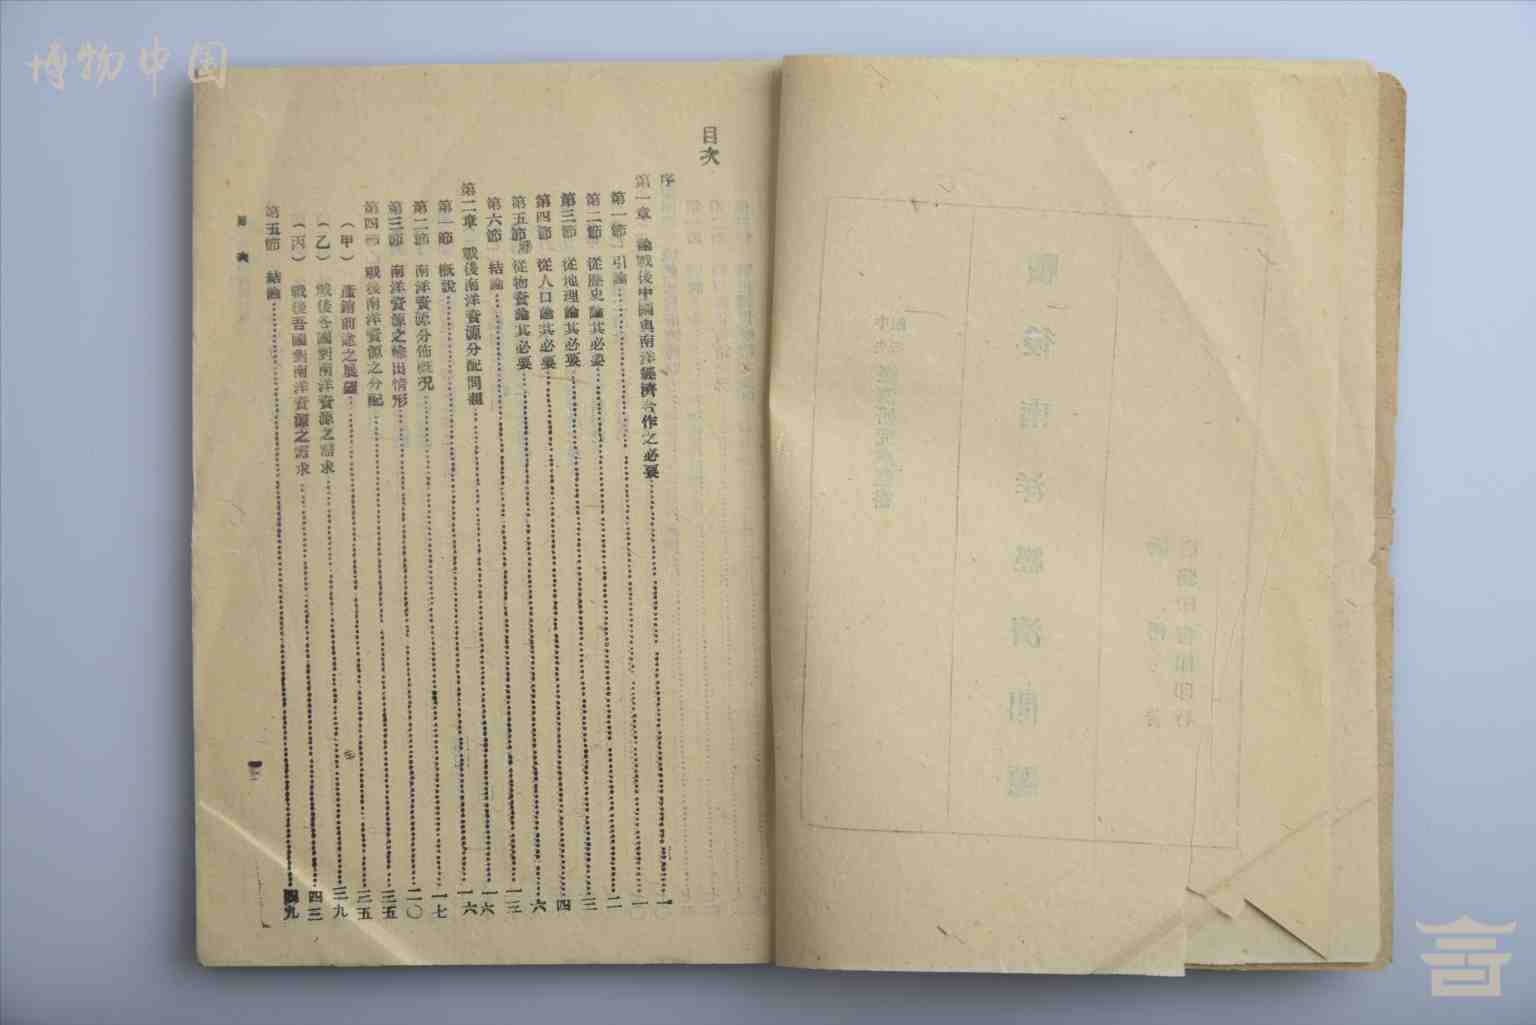 博物中国
戰後南洋經濟問題
目次
序
第一章 論戰後中國與南洋經濟合作之必要……一
第一節 引論……一
第二節 從歷史論其必要……二
第三節 從地理論其必要……三
第四節 從人口論其必要……四
第五節 從物資論其必要……六
第六節 結論……一三
第二章 戰後南洋資源分配問題……一六
第一節 概說……一六
第二節 南洋資源分佈概況……一七
第三節 南洋資源之輸出情形……二〇
第四節 戰後南洋資源之分配……三五
(甲) 產銷前途之展望……三五
(乙) 戰後各國對南洋資源之需求……三九
(丙) 戰後吾國對南洋資源之需求……四三
第五節 結論……四九
目次